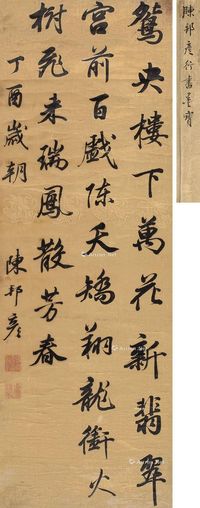 陳邦彥行書墨寶
鴛央樓下萬花新翡翠
宮前百戲陳夭矯翔龍銜火
樹飛來瑞鳳散芳春
丁酉歲朝 陳邦彥